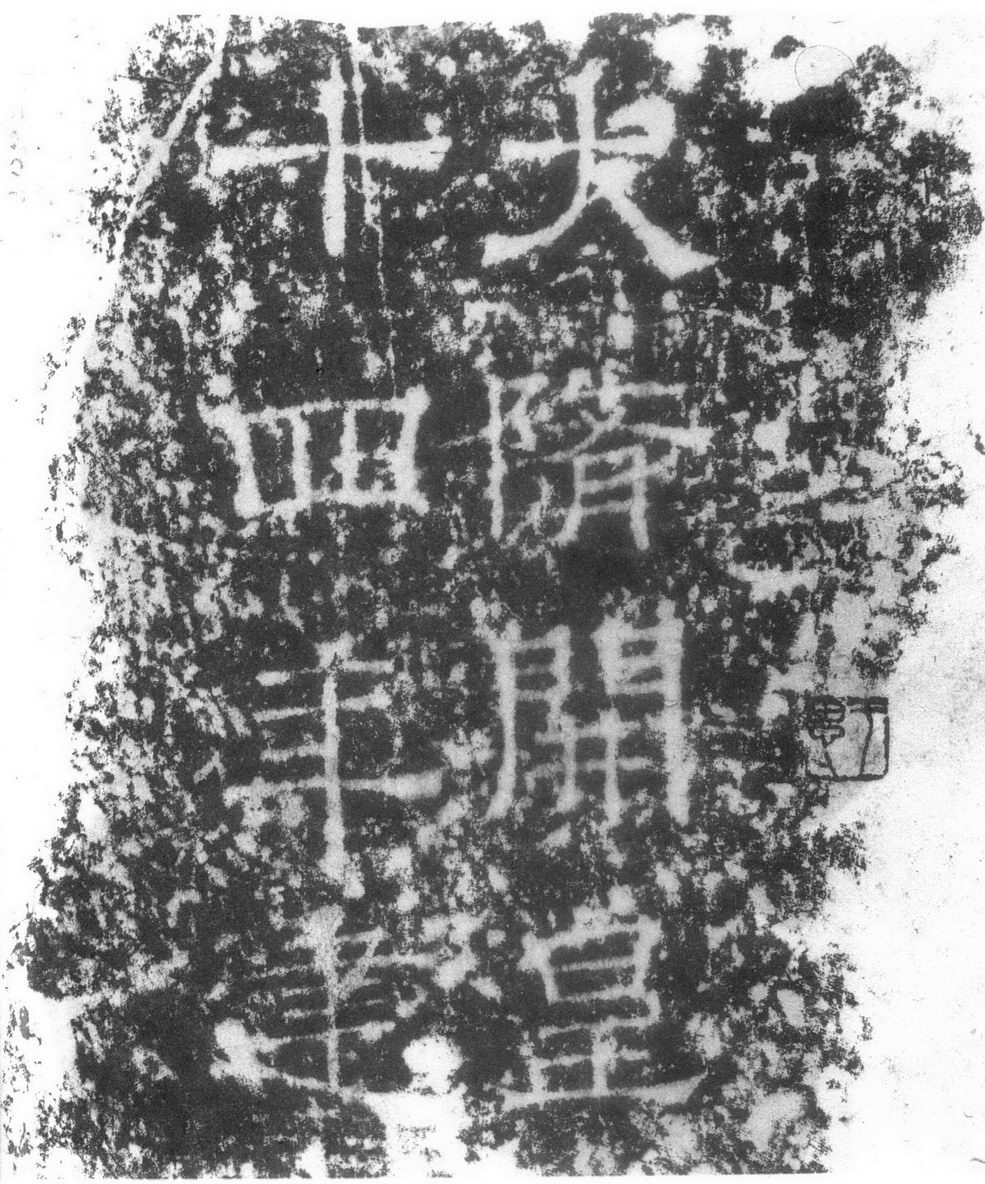 大隋開皇
十四年建